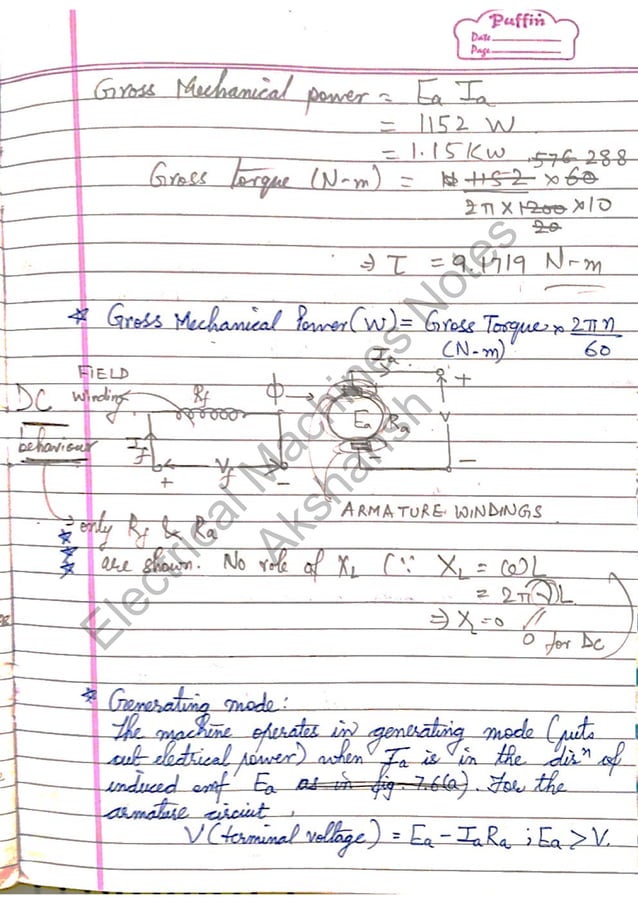 Puffin
Date
Page
Gross Mechanical power = Ea Ia
= 1152 W
= 1.15 KW
576 288
Gross torque (N-m) = 1152 × 60
2π × 1200 × 10
20
⇒ τ = 9.1719 N-m
* Gross Mechanical Power (W) = Gross Torque × 2πn
(N-m) 60
FIELD
winding
Rf
ϕ
Ia
+
DC
behaviour
If
Vf
+ −
Ea
Ra
V
−
ARMATURE WINDINGS
→ only Rf & Ra
are shown. No role of XL (∵ XL = ωL
= 2πνL
⇒ XL = 0
0 for DC
* Generating mode:
The machine operates in generating mode (puts
out electrical power) when Ia is in the dirⁿ of
induced emf Ea as in fig. 7.6(a). For the
armature circiut,
V (terminal voltage) = Ea − IaRa ; Ea > V.
Electrical Machines Notes
Akshansh